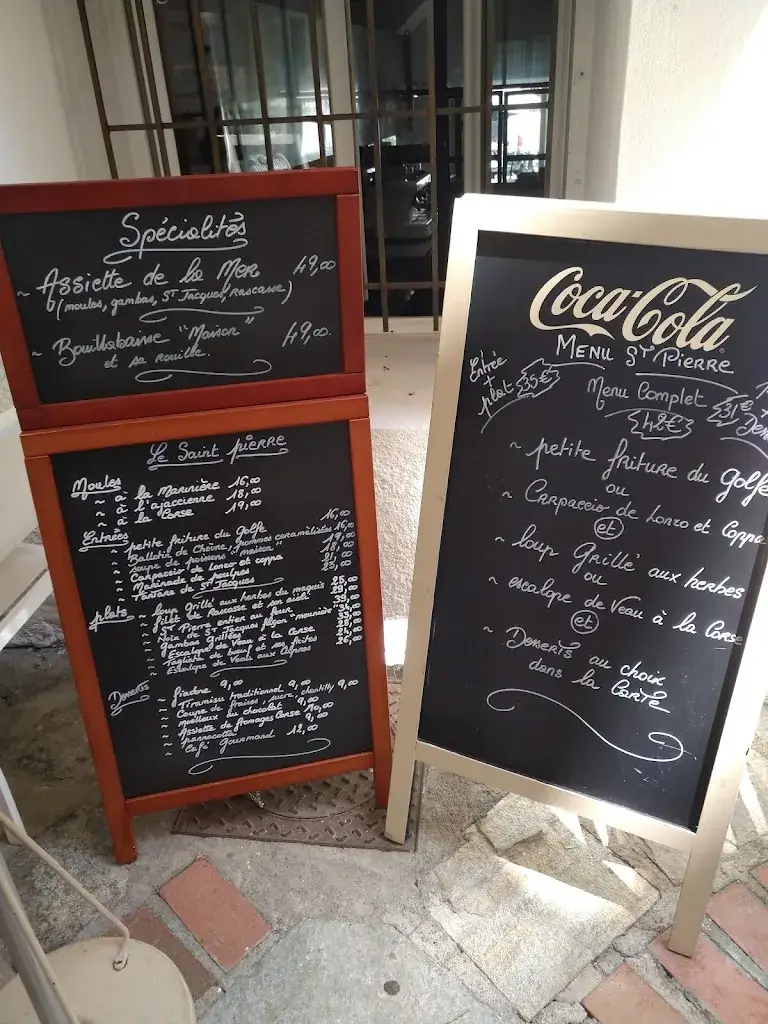 Spécialités
~ Assiette de la Mer 49,00
(moules, gambas, St Jacques, rascasse)
~ Bouillabaisse "Maison" 49,00.
et sa rouille.
Le Saint Pierre
Moules
~ à la Marinière 16,00
~ à l'ajaccienne 18,00
~ à la Corse 19,00
Entrées
~ petite friture du golfe 16,00
~ Ballotin de Chèvre, pommes caramélisées 16,00
~ soupe de poissons "maison" 19,00
~ Carpaccio de Lonzo et coppa 18,00
~ Marinade de poulpes 21,00
~ Tartare de St Jacques 23,00
plats
~ loup Grillé aux herbes du maquis 25,00
~ filet de Rascasse et son aïoli
~ St Pierre entier au four 39,00
~ Noix de St Jacques façon "meunière"
~ gambas Grillées
~ Escalope de Veau à la Corse
~ Tagliata de bœuf et ses frites
~ Escalope de Veau aux Cèpes 26,00
Desserts
~ fiadone 9,00
~ Tiramisu traditionnel 9,00
~ Coupe de fraises, sucre, chantilly 9,00
~ moelleux au chocolat 9,00
~ Assiette de fromages Corse 10,00
~ pannacotta 9,00
~ Café gourmand 12,00
Coca-Cola
Menu St Pierre
Entrée + plat 35€
Menu Complet 48€
31€ +
~ petite friture du golfe
ou
~ Carpaccio de Lonzo et Coppa
et
~ loup Grillé aux herbes
ou
~ escalope de Veau à la Corse
et
~ Desserts au choix
dans la Carte